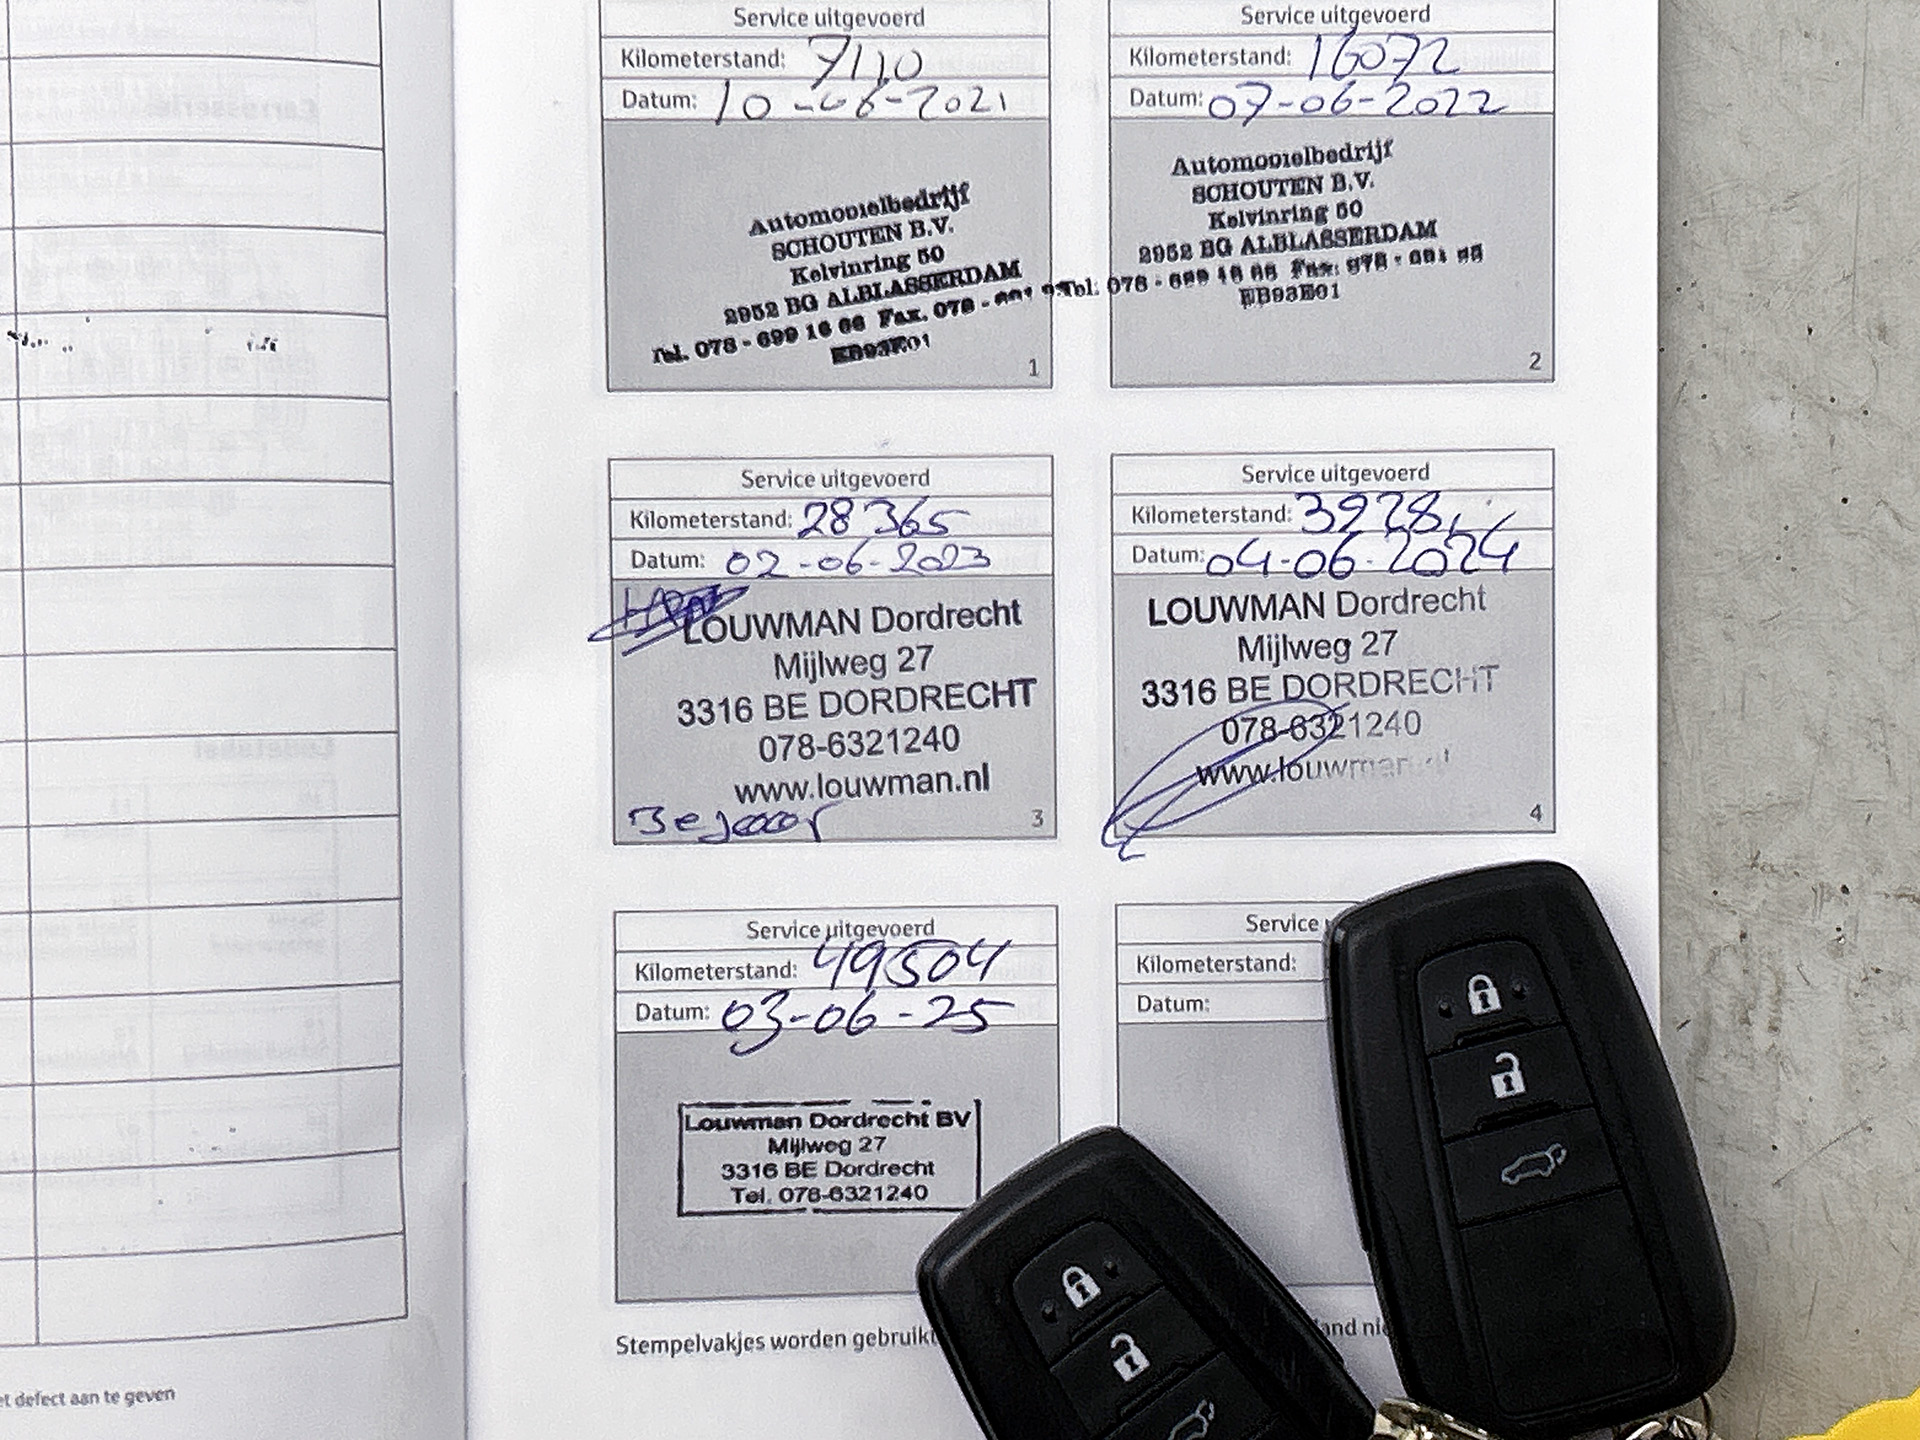 Service uitgevoerd
Kilometerstand: 7110
Datum: 10-06-2021
Automobielbedrijf
SCHOUTEN B.V.
Kelvinring 50
2952 BG ALBLASSERDAM
Tel. 078 - 699 16 66 Fax. 078 - 691
EB93E01
1
Service uitgevoerd
Kilometerstand: 16072
Datum: 07-06-2022
Automobielbedrijf
SCHOUTEN B.V.
Kelvinring 50
2952 BG ALBLASSERDAM
Tel. 078 - 699 16 66 Fax. 078 - 691
EB93E01
2
Service uitgevoerd
Kilometerstand: 28365
Datum: 02-06-2023
LOUWMAN Dordrecht
Mijlweg 27
3316 BE DORDRECHT
078-6321240
www.louwman.nl
3
Service uitgevoerd
Kilometerstand:
Datum: 04-06-2024
LOUWMAN Dordrecht
Mijlweg 27
3316 BE DORDRECHT
078-6321240
www.louwman.nl
4
Service uitgevoerd
Kilometerstand: 49504
Datum: 03-06-25
Louwman Dordrecht BV
Mijlweg 27
3316 BE Dordrecht
Tel. 078-6321240
Service
Kilometerstand:
Datum:
Stempelvakjes worden gebruikt
defect aan te geven